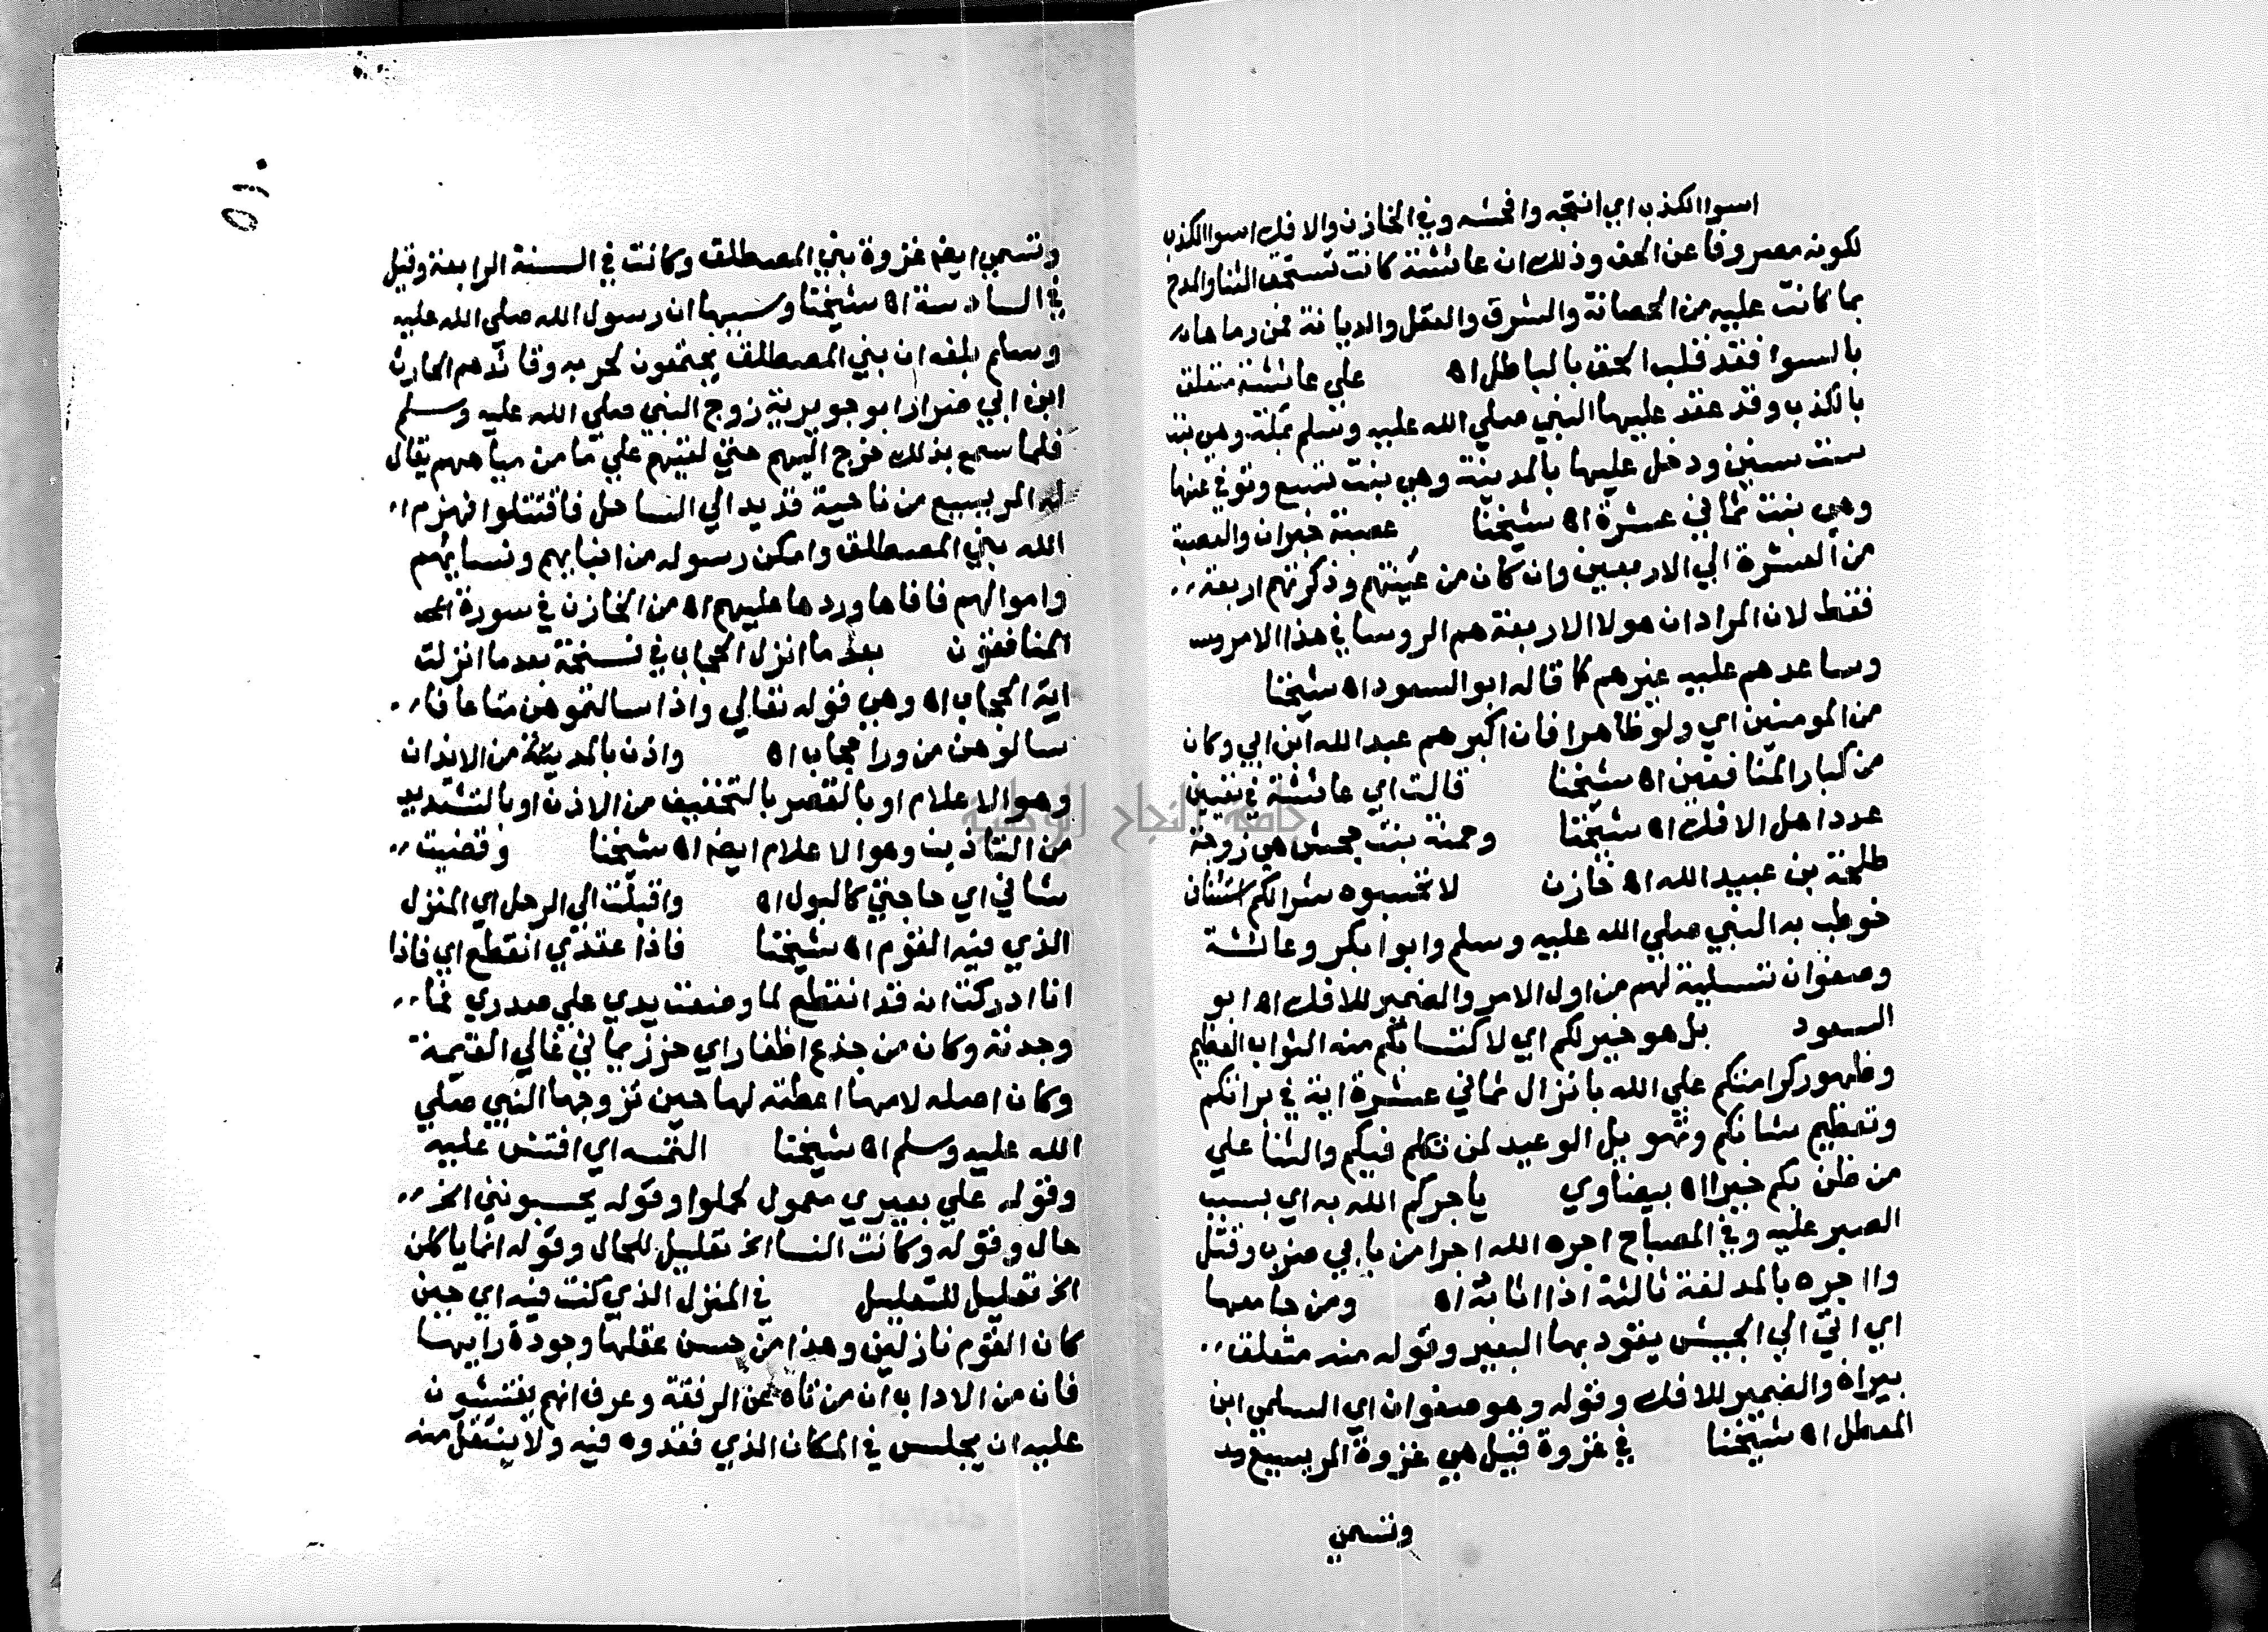 اسوا الكذب اي اقبحه وافحشه وفي الخازن والافك اسوا الكذب
لكونه مصروفا عن الحق وذلك ان عائشة كانت تستحق الثنا والمدح
بما كانت عليه من الحصانة والشرف والعقل والديانة فمن رماها
بالسوا فقد قلب الحق بالباطل اه علي عائشة متعلق
بالكذب وقد عقد عليها النبي صلي الله عليه وسلم بمكة وهي بنت
ست سنين ودخل عليها بالمدينة وهي بنت تسع وتوفي عنها
وهي بنت ثماني عشرة اه شيخنا عصبة خبران والعصبة
من العشرة الي الاربعين وان كان من عينتهم وذكرتهم اربعة
فقط لان المراد ان هولا الاربعة هم الروسا في هذا الامر
وساعدهم عليه غيرهم كما قاله ابو السعود اه شيخنا
من المومنين اي ولو ظاهرا فان اكبرهم عبد الله ابن ابي وكان
من كبار المنافقين اه شيخنا قالت اي عائشة في تعيين
عدد اهل الافك اه شيخنا وحمنة بنت جحش هي زوجة
طلحة بن عبيد الله اه خازن لا تحسبوه شرا لكم استئنان
خوطب به النبي صلي الله عليه وسلم وابوا بكر وعائشة
وصفوان تسلية لهم من اول الامر والضمير للافك اه ابو
السعود بل هو خير لكم اي لاكتسابكم منه الثواب العظيم
وظهور كرامتكم علي الله بانزال ثماني عشرة اية في براتكم
وتعظيم شانكم وتهويل الوعيد لمن تكلم فيكم والثنا علي
من ظن بكم خيرا اه بيضاوي ياجركم الله به اي بسبب
الصبر عليه وفي المصباح اجره الله اجرا من بابي ضرب وقتل
وااجره بالمد لغة ثالثة اذا اثابه اه ومن جا معها
اي اتي الي الجيش يقود بها البعير وقوله منه متعلق
ببراة والضمير للافك وقوله وهو صفوان اي السلمي ابن
المعطل اه شيخنا في غزوة قيل هي غزوة المريسيع
وتسمي
٥١٠
وتسمي ايضه غزوة بني المصطلق وكانت في السنة الرابعة وقيل
في السادسة اه شيخنا وسببها ان رسول الله صلي الله عليه
وسلم بلغه ان بني المصطلق يجتمعون لحربه وقائدهم الحارث
ابن ابي ضرار ابو جويرية زوج النبي صلي الله عليه وسلم
فلما سمع بذلك خرج اليهم حتي لقيهم علي ما من مياههم يقال
له المريسيع من ناحية قديد الي الساحل فاقتتلوا فهزم
الله بني المصطلق وامكن رسوله من ابنايهم ونسايهم
واموالهم فافاها وردها عليهم اه من الخازن في سورة
المنافقون بعد ما انزل الحجاب في نسخة بعد ما انزلت
اية الحجاب اه وهي قوله تعالي واذا سالتموهن متاعا فا
سالوهن من ورا حجاب اه واذن بالمدينة من الايذان
وهو الاعلام او بالقصر بالتخفيف من الاذن او بالتشديد
من التاذين وهو الاعلام ايضه اه شيخنا وقضيت
شاني اي حاجتي كالبول اه واقبلت الي الرحل اي المنزل
الذي فيه القوم اه شيخنا فاذا عقدي انقطع اي فاذا
انا ادركت انه قد انقطع لما وضعت يدي علي صدري فما
وجدته وكان من جذع اظفار اي خرز يماني غالي القيمة
وكان اصله لامها اعطته لها حين تزوجها النبي صلي
الله عليه وسلم اه شيخنا التمسه اي افتش عليه
وقوله علي بعيري معمول لحملوا وقوله يحسبونني الخ
حال وقوله وكانت النسا الخ تعليل للحال وقوله انما ياكلن
الخ تعليل للتعليل في المنزل الذي كنت فيه اي حين
كان القوم نازلين وهذا من حسن عقلها وجودة رايها
فان من الاداب ان من تاه عن الرفقة وعرف انهم يفتشون
عليه ان يجلس في المكان الذي فقدوه فيه ولا ينتقل منه
جامعة النجاح الوطنية